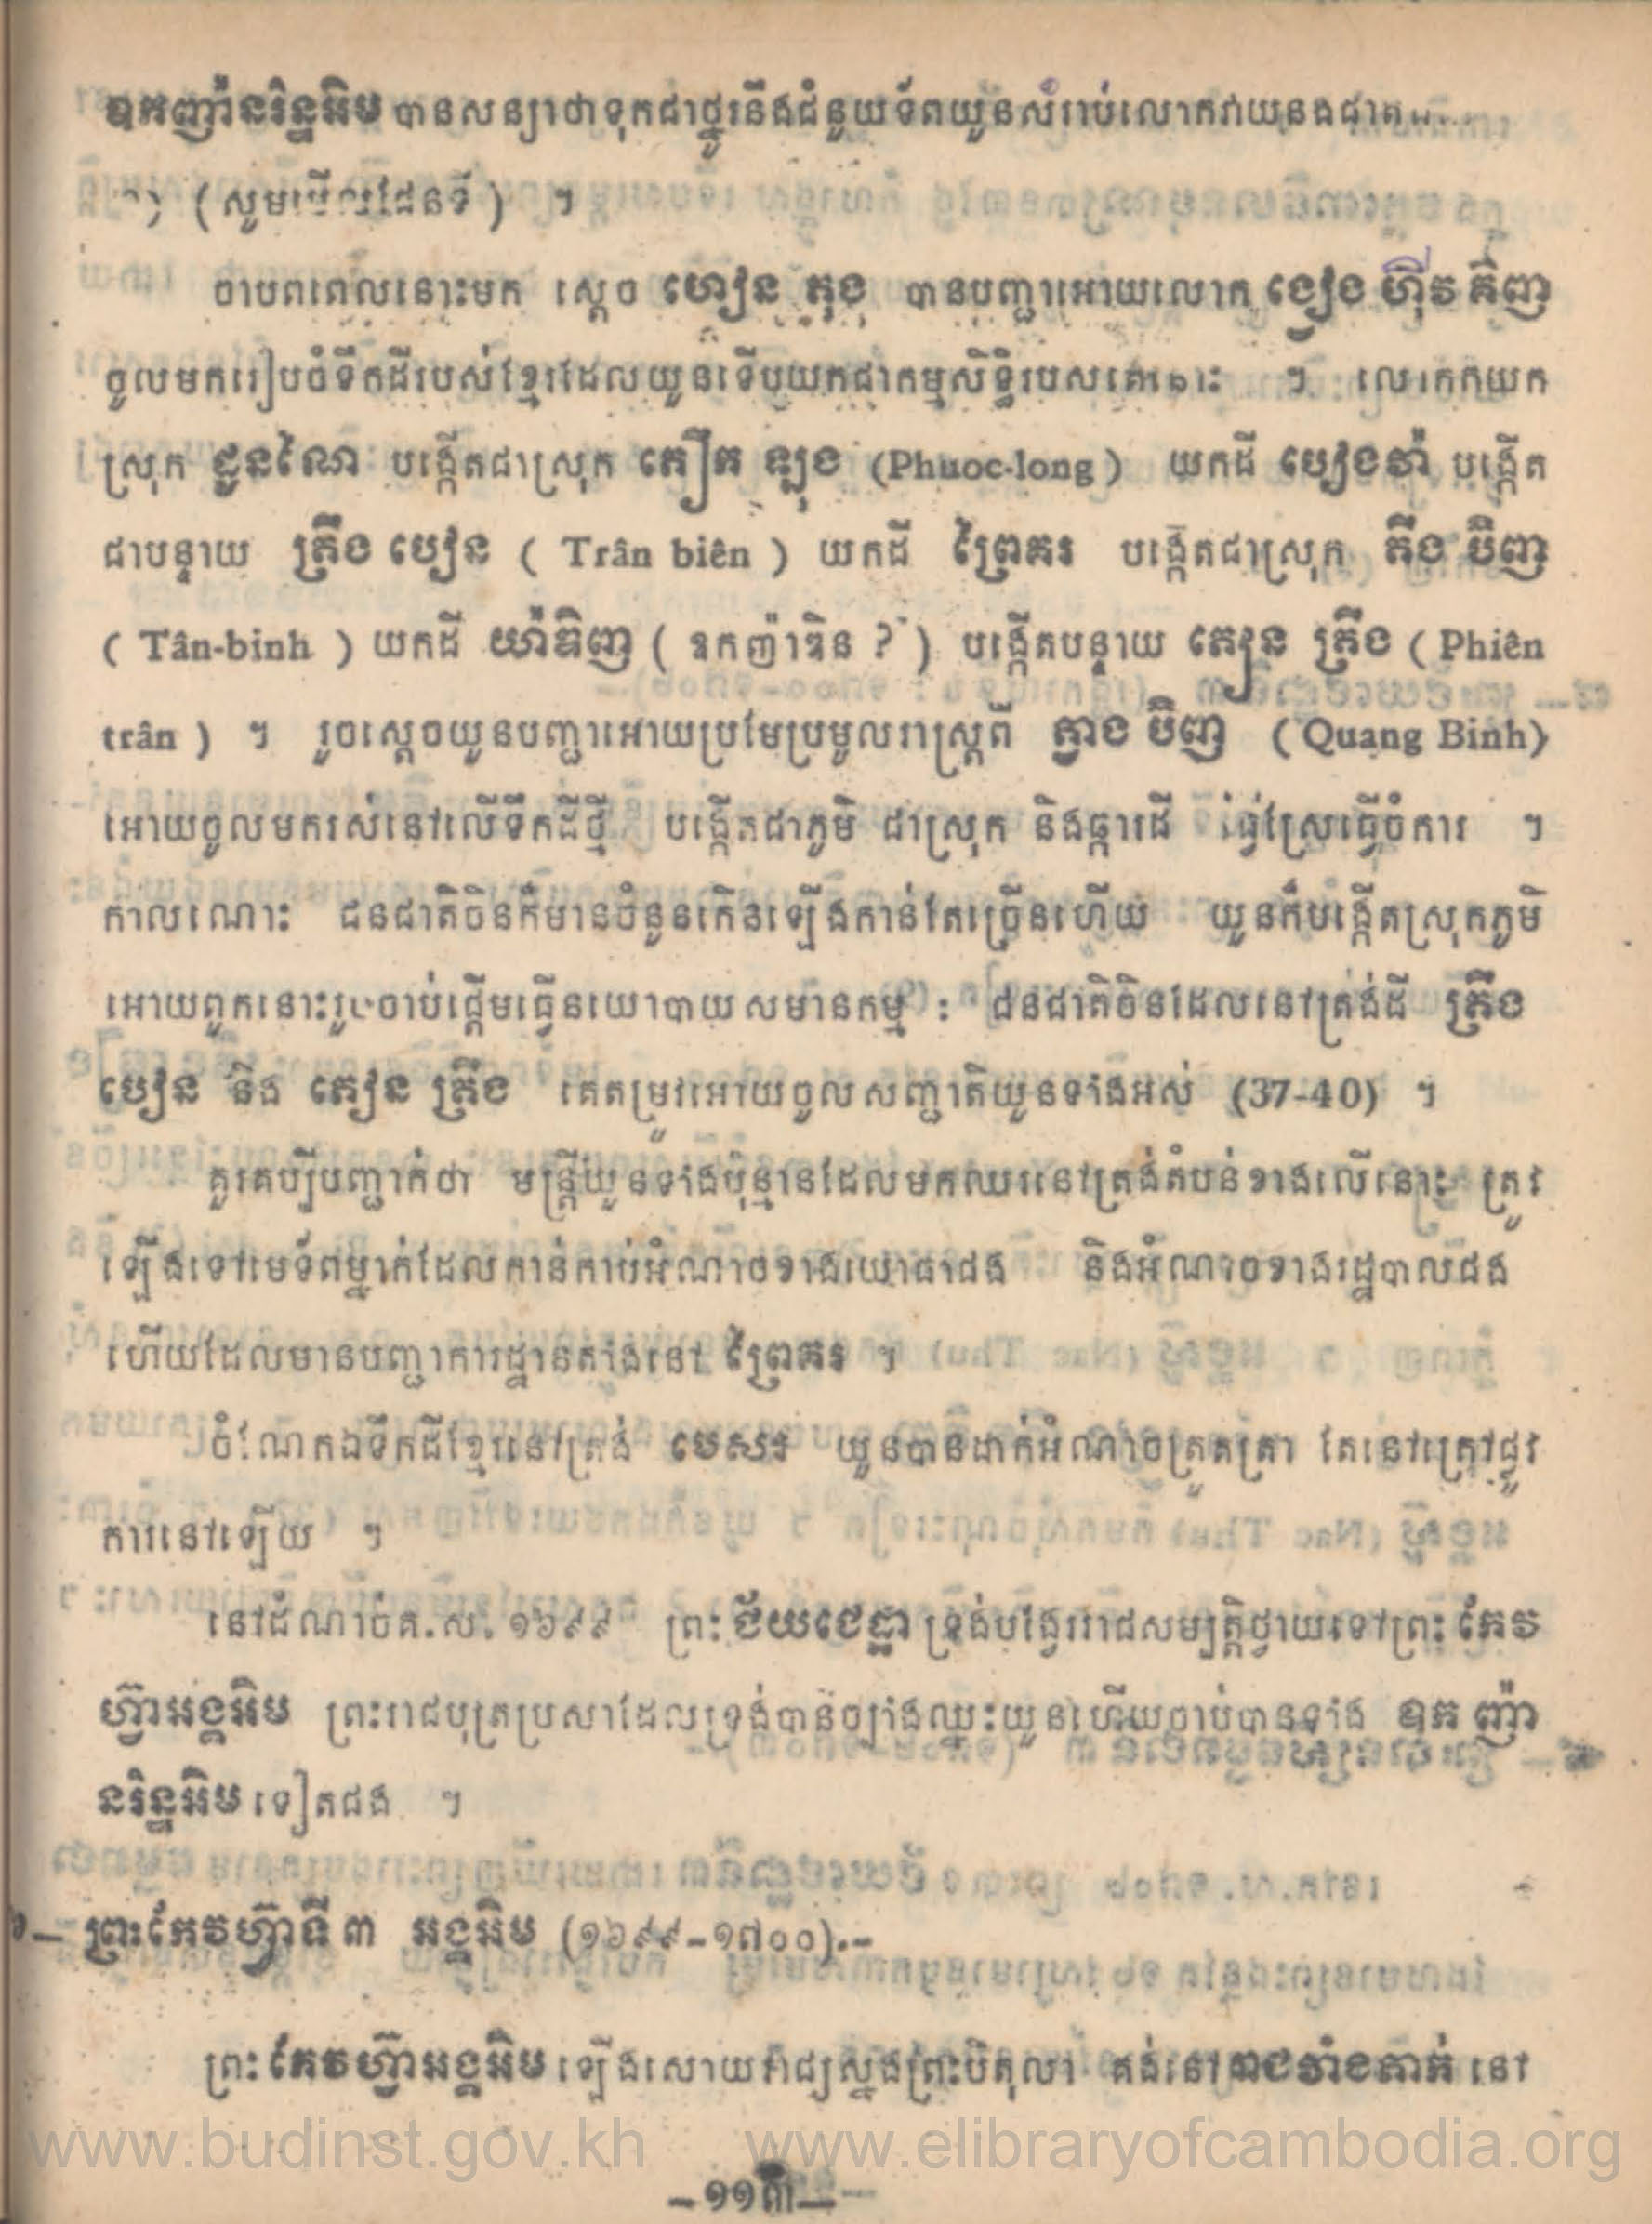 ឧកញ៉ានរិន្ទអិម បានសន្យាថាទុកជាថ្នូរនឹងជំនួយទ័ពយួនសំរាប់លោកវាយនងជាត
(សូមមើលផែនទី) ។
ចាបពពេលនោះមក ស្តេច ហៀន តុង បានបញ្ជាអោយលោក ង្វៀង ហ៊ីវ គិញ
ចូលមករៀបចំទឹកដីរបស់ខ្មែរដែលយួនទើបយកជាកម្មសិទ្ធិរបសគេនោះ ។ លោកកយក
ស្រុក ដូនណៃ បង្កើតជាស្រុក ភឿក ឡុង (Phuoc-long) យកដី បៀងវ៉ា បង្កើត
ជាបន្ទាយ ត្រឹង បៀន ( Trân biên ) យកដី ព្រៃគរ បង្កើតជាស្រុក តឹង ប៊ិញ
( Tân-binh ) យកដី យ៉ាឌិញ ( ឧកញ៉ាឌិន ? ) បង្កើតបន្ទាយ ភៀន ត្រឹង ( Phiên
trân ) ។ រួចស្តេចយួនបញ្ជាអោយប្រមែប្រមូលរាស្ត្រពី ក្វាង ប៊ិញ ( Quang Binh)
អោយចូលមករស់នៅលើទឹកដីថ្មី បង្កើតជាភូមិ ជាស្រុក និងធ្ការដី ធ្វើស្រែធ្វើចំការ ។
កាលណោះ ជនជាតិចិនក៏មានចំនួនកើនឡើងកាន់តែច្រើនហើយ យួនក៏បង្កើតស្រុកភូមិ
អោយពួកនោះរួចចាប់ផ្តើមធ្វើនយោបាយសមានកម្ម : ជនជាតិចិនដែលនៅត្រង់ដី ត្រឹង
បៀន និង ភៀន ត្រឹង គេតម្រូវអោយចូលសញ្ជាតិយួនទាំងអស់ (37-40) ។
គួរគប្បីបញ្ជាក់ថា មន្ត្រីយួនទាំងប៉ុន្មានដែលមកឈរនៅត្រង់តំបន់ខាងលើនោះ ត្រូវ
ឡើងទៅមេទ័ពម្នាក់ដែលកាន់កាប់អំណាចខាងយោធាផង និងអំណាចខាងរដ្ឋបាលផង
ហើយដែលមានបញ្ជាការដ្ឋានតាំងនៅ ព្រៃគរ ។
ចំណែកឯទឹកដីខ្មែរនៅត្រង់ មេសរ យួនបានដាក់អំណាចត្រួតត្រា តែនៅក្រៅផ្លូវ
ការនៅឡើយ ។
នៅដំណាច់គ.ស. ១៦៩៩ ព្រះ ជ័យជេដ្ឋា ទ្រង់បង្វែររាជសម្បត្តិថ្វាយទៅព្រះ កែវ
ហ៊្វាអង្គអិម ព្រះរាជបុត្រប្រសាដែលទ្រង់បានច្បាំងឈ្នះយួនហើយចាប់បានទាំង ឧកញ៉ា
នរិន្ទអិម ទៀតផង ។
៦— ព្រះកែវហ៊្វាទី ៣ អង្គអិម (១៦៩៩-១៧០០).-
ព្រះ កែវហ៊្វាអង្គអិម ឡើងសោយរាជ្យស្នងព្រះបិតុលា គង់នៅរាជវាំងតាក់ នៅ
www.budinst.gov.kh www.elibraryofcambodia.org
—១១៣—